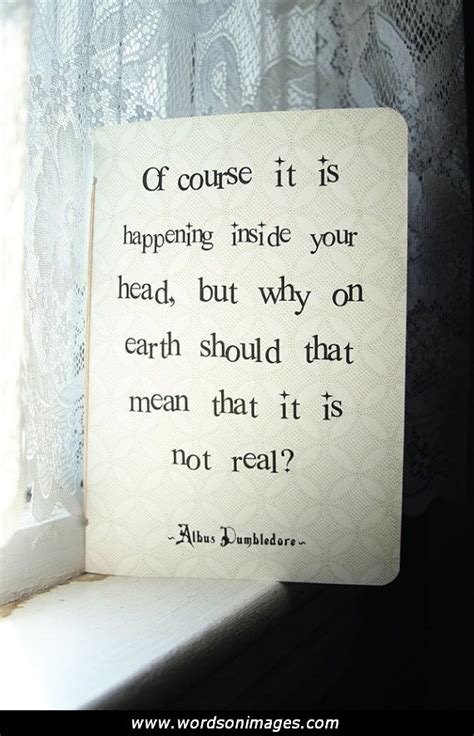 Of course it is
happening inside your
head, but why on
earth should that
mean that it is
not real?
~Albus Dumbledore~
www.wordsonimages.com